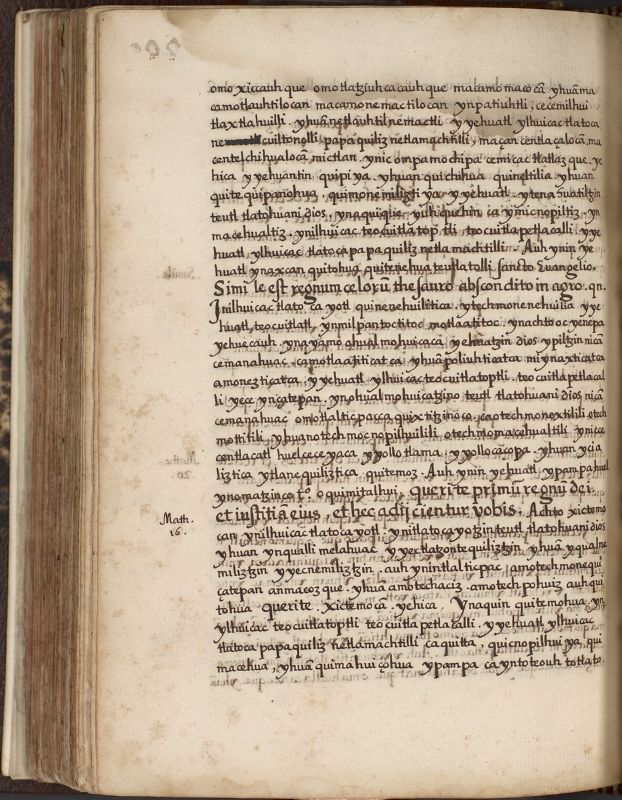 omo xiccauh que omotlatziuhcacauhque macamo maco cã yhuã ma
camotlauhtilocan macamo nemactilocan ynpatiuhtli, cecemilhui
tlaxtlahuilli. yhuã netlauhtil nemactli yyehuatl ylhuicac tlatoca
cuiltonolli papaquiliz netlamachtilli, maçan centlaçalocã, ma
centelchihualocã mictlan. ynic ompa mochipa cemicac tlatlaz que. ye
hica yyehuantin quipiya. yhuan quichihua quineltilia. yhuan
quitequipanohua, quimonemiliztiya yyehuatl. ytenahuatiltzin
teutl tlatohuani dios, ynaquique yuh quichin ca ymicnopiltiz. yn
macehualtiz. ynilhuicac teocuitlatoptli teocuitla petlacalli. yye
huatl, ylhuicac tlatoca papaquiliz netlamachtilli. Auh ynin ye
huatl ynaxcan quitohua quitenehua teutlatolli sancto Euangelio.
Simile est regnum celorũ thesauro abscondito in agro. qn.
Inilhuicac tlatocayotl quinenehuilitica. ytechmonenehuilia yye
huatl, teocuitlatl, ynmilpan toctitoc motlaatitoc. ynachtoc yenepa
yehuecauh. ynayamo qhualmohuicacã yehuatzin dios ypiltzin nicã
cemanahuac. camotlaatiticatca yhuã poliuhticatca miynaxticatca
amoneztica tca, yyehuatl ylhuicac teocuitlatoptli. teocuitla petlacal
li yece yniçatepan. ynohualmohuicatzino teutl tlatohuani dios nicã
cemanahuac omotlalticpacquixtitzinoco. caotechmonextilili otech
mottitili, yhuan otechmocnopilhuilili otechmomacehualtili ynicce
centlacatl huelceceyaca yyollotlama, yyollocacopa. yhuan ycia
liztica ytlanequiliztica quitemoz. Auh ynin yehuatl, ypampa huel
ynomatzinco to. oquimitalhui, querite primũ regnũ dei
et iustitiã eius, et hec adijcientur vobis. Achto xictemo
Math.
16.
can ynilhuicac tlatocayotl ynitlatocayotzin teutl tlatohuani dios
yhuan ynqualli melahuac yyectlatzontequiliztzin yhuã yqualne
miliztzin yyecnemiliztzin. auh ynintlalticpac, amotechmonequi
çatepan anmacoz que. yhuã ambtechaciz. amotech pohuiz auh qui
tohua querite. xictemocã. yehica. Ynaquin quitemohua yn
ylhuicac teocuitlatoptli teocuitla petlacalli. yyehuatl, ylhuicac
tlatoca papaquiliz netlamachtilli caquitta, quicnopilhuiya, qui
macehua, yhuã quimahuiçohua ypampa ca ynto teouh totlato